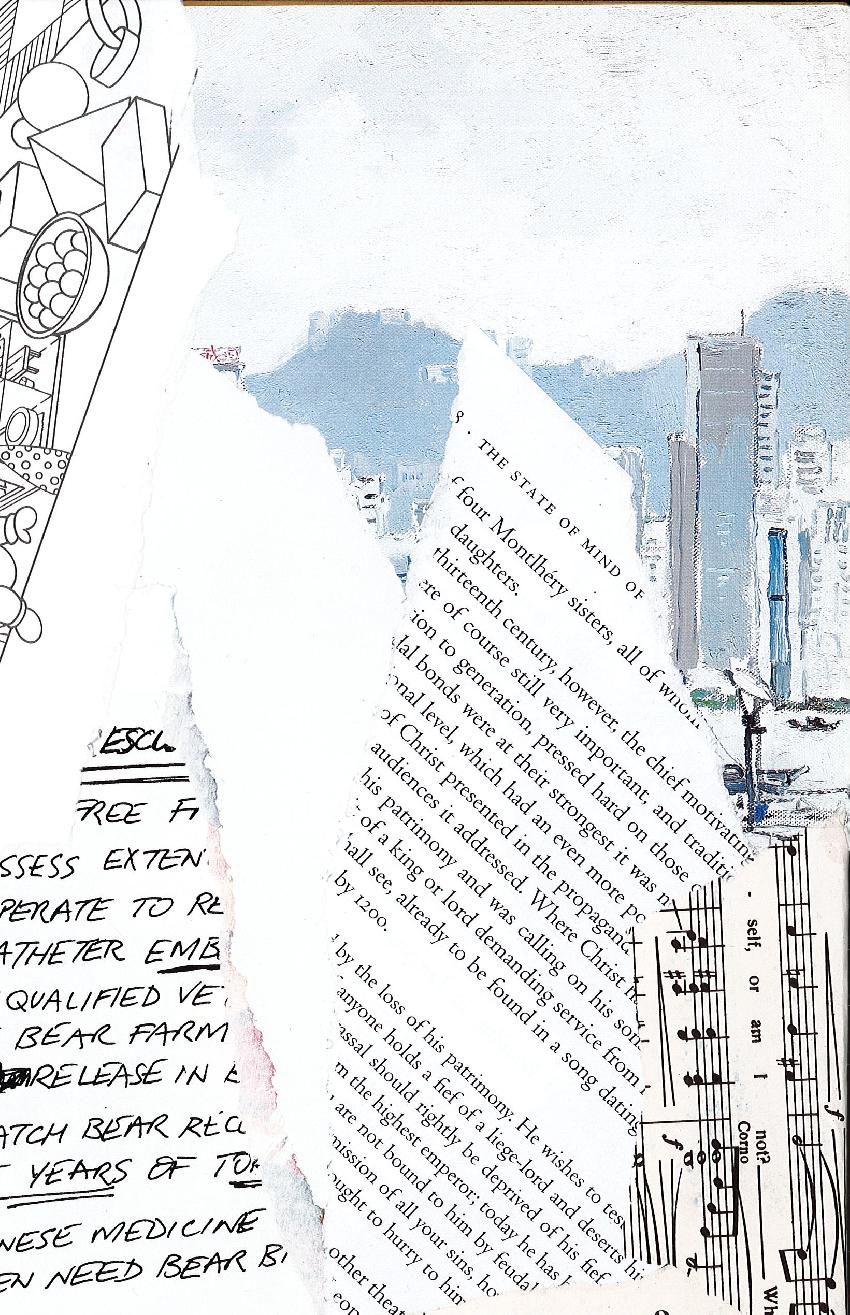 ESCU
FREE FI
SSESS EXTEN
PERATE TO RE
ATHETER EMB
QUALIFIED VE
BEAR FARM
RELEASE IN
ATCH BEAR REC
YEARS OF TO
NESE MEDICINE
EN NEED BEAR BI
8 · THE STATE OF MIND OF
f four Montlhéry sisters, all of whom
daughters.
thirteenth century, however, the chief motivating
ere of course still very important, and traditio
ion to generation, pressed hard on those
dal bonds were at their strongest it was n
onal level, which had an even more po
of Christ presented in the propagand
audiences it addressed. Where Christ
his patrimony and was calling on his son
of a king or lord demanding service from
hall see, already to be found in a song dating
by 1200.
by the loss of his patrimony. He wishes to tes
anyone holds a fief of a liege-lord and deserts hi
assal should rightly be deprived of his fief
m the highest emperor; today he has
are not bound to him by feudal
mission of all your sins, ho
ought to hurry to him
other theat
eop
- self, or am I not?
Corno
f
f
Wh